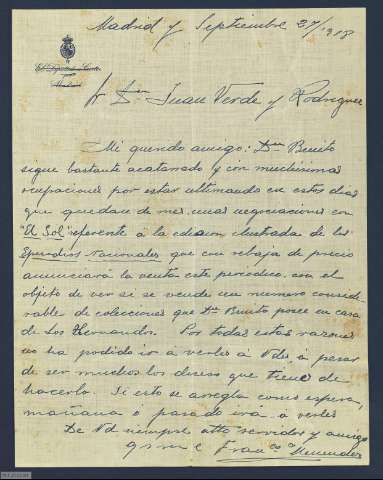 Madrid y Septiembre 27/1918
El Diputado a Cortes
Madrid
Sr Dn Juan Verde y Rodriguez
Mi querido amigo: Dn Benito
sigue bastante acatarrado y con muchisimas
ocupaciones por estar ultimando en estos dias
que quedan de mes, unas negociaciones con
"El Sol" referente á la edicion ilustrada de los
Episodios Nacionales que con rebaja de precio
anunciará la venta este periodico, con el
objeto de ver si se vende un numero conside-
rable de colecciones que Dn Benito posee en casa
de Los Hernando. Por todas estas razones
no ha podido ir á verles á Vdes, á pesar
de ser muchos los deseos que tiene de
hacerlo. Si esto se arregla como espera,
mañana ó pasado irá á verles
De Vd siempre atto servidor y amigo
q s m e Franco Menendez